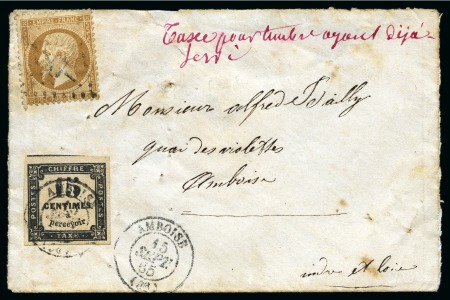 EMPIRE FRANC
Taxée pour timbre ayant déjà
servi
Monsieur alfred Bailly
quai des violettes
Amboise
indre et loire
CHIFFRE
POSTES
POSTES
15
CENTIMES
à
percevoir
TAXE
AMBOISE
15
SEPT.
65